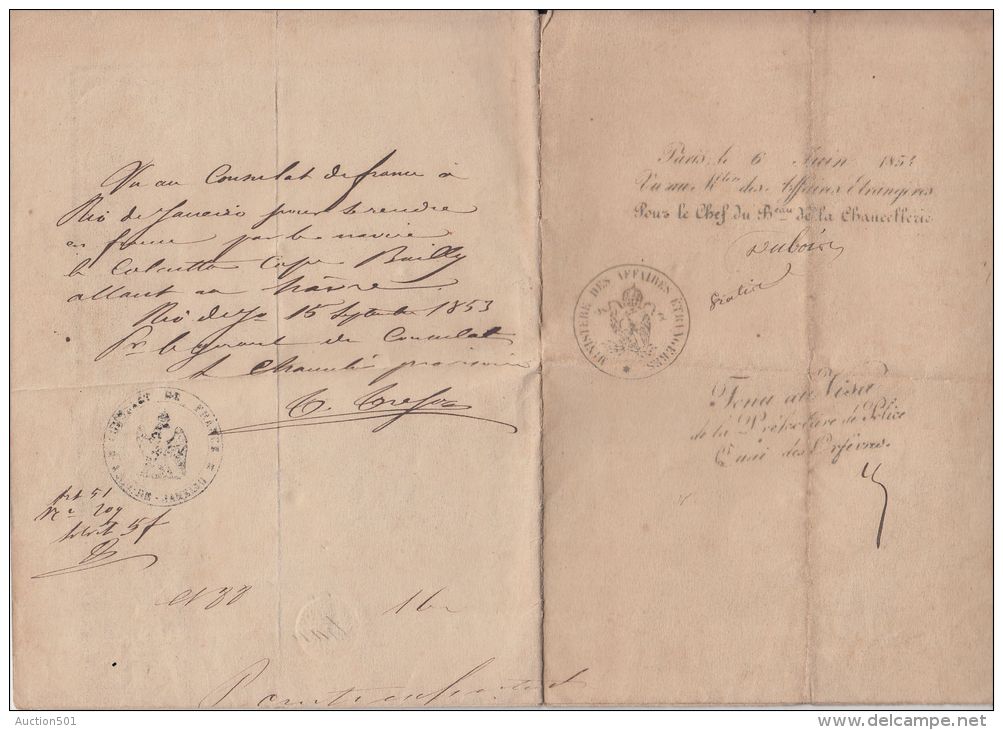 Vu au Consulat de france à
Rio de Janeiro pour se rendre
en france par le navire
le Calcutta Cape Bailly
allant au havre.
Rio de Jo 15 Septembre 1853
Pr le gérant du Consulat
le Chancelier provisoire
CONSULAT DE FRANCE
RIO-DE-JANEIRO
art 51
No 209
15 f
No 33
16
Paris, le 6 Juin 1854
Vu au Mtère des Affaires Etrangères
Pour le Chef du Beau de la Chancellerie
Dubois
Gratis
MINISTERE DES AFFAIRES ETRANGERES
Tenu au Visa
de la Préfecture de Police
Quai des Orfèvres
Auction501
delcampe.net